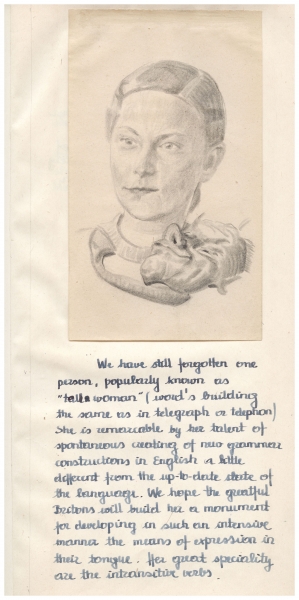 We have still forgotten one
person, popularly known as
"tella woman" (word's building
the same as in telegraph or telephon)
She is remarcable by her talent of
spontaneous creating of new grammar
constructions in English a little
different from the up-to-date state of
the language. We hope the greatful
Britons will build her a monument
for developing in such an intensive
manner the means of expression in
their tongue. Her great speciality
are the intransitive verbs.